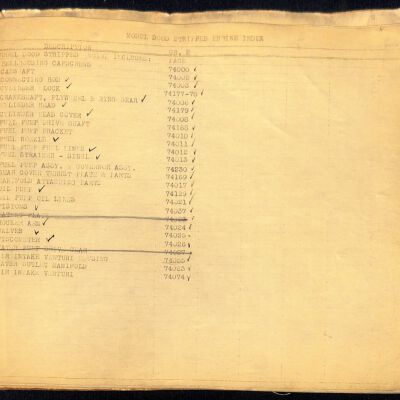 MODEL DOOD STRIPPED ENGINE INDEX
DESCRIPTION
MODEL DOOD STRIPPED ENGINE INCLUDES:
PAGE
CAPSCREWS 74000 ✓
CAMSHAFT 74002 ✓
CONNECTING ROD ✓ 74003 ✓
CYLINDER BLOCK ✓ 74177-78 ✓
CRANKSHAFT, FLYWHEEL & RING GEAR ✓ 74006 ✓
CYLINDER HEAD ✓ 74179 ✓
CYLINDER HEAD COVER ✓ 74008 ✓
FUEL PUMP DRIVE SHAFT 74183 ✓
FUEL PUMP BRACKET 74010 ✓
FUEL NOZZLE ✓ 74011 ✓
FUEL PUMP FUEL LINES ✓ 74012 ✓
FUEL STRAINER - ✓ 74013 ✓
FUEL PUMP ASSY. & GOVERNOR ASSY. 74230 ✓
GEAR COVER PLATE & PARTS 74169 ✓
MANIFOLD ATTACHING PARTS 74017 ✓
OIL PUMP ✓ 74129 ✓
OIL PUMP OIL LINES 74021 ✓
PISTONS ✓ 74037 ✓
PLATE
ROCKER ARM ✓ 74024 ✓
VALVES ✓ 74025 ✓
✓ 74026 ✓
WATER PUMP DRIVE GEAR
AIR INTAKE VENTURI HOUSING
WATER OUTLET MANIFOLD
AIR INTAKE VENTURI 74074 ✓